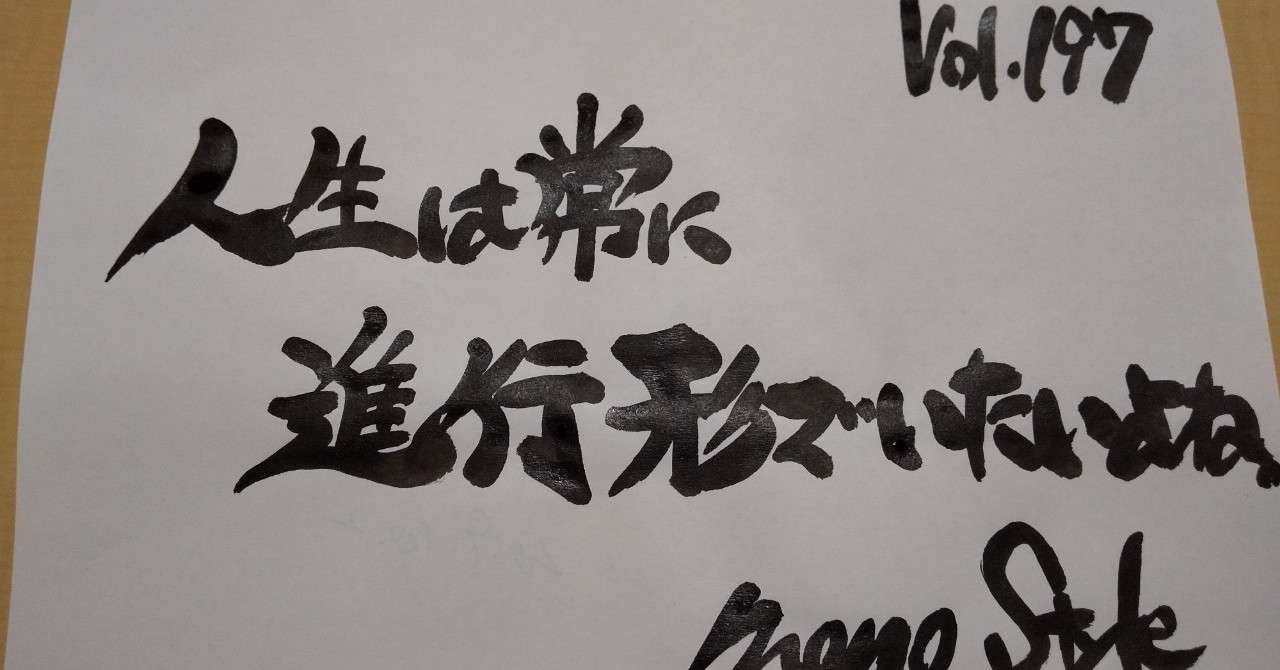 Vol.197
人生は常に
進行形でいたいよね。
mono Style